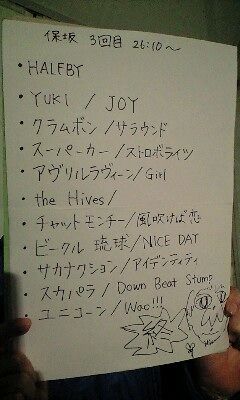 保坂 3回目 26:10〜
・HALFBY
・YUKI / JOY
・クラムボン/サラウンド
・スーパーカー/ストロボライツ
・アヴリルラヴィーン/Girl
・the Hives/
・チャットモンチー/風吹けば恋
・ビークル 琉球/NICE DAY
・サカナクション/アイデンティティ
・スカパラ/Down Beat Stomp
・ユニコーン/Wao!!!